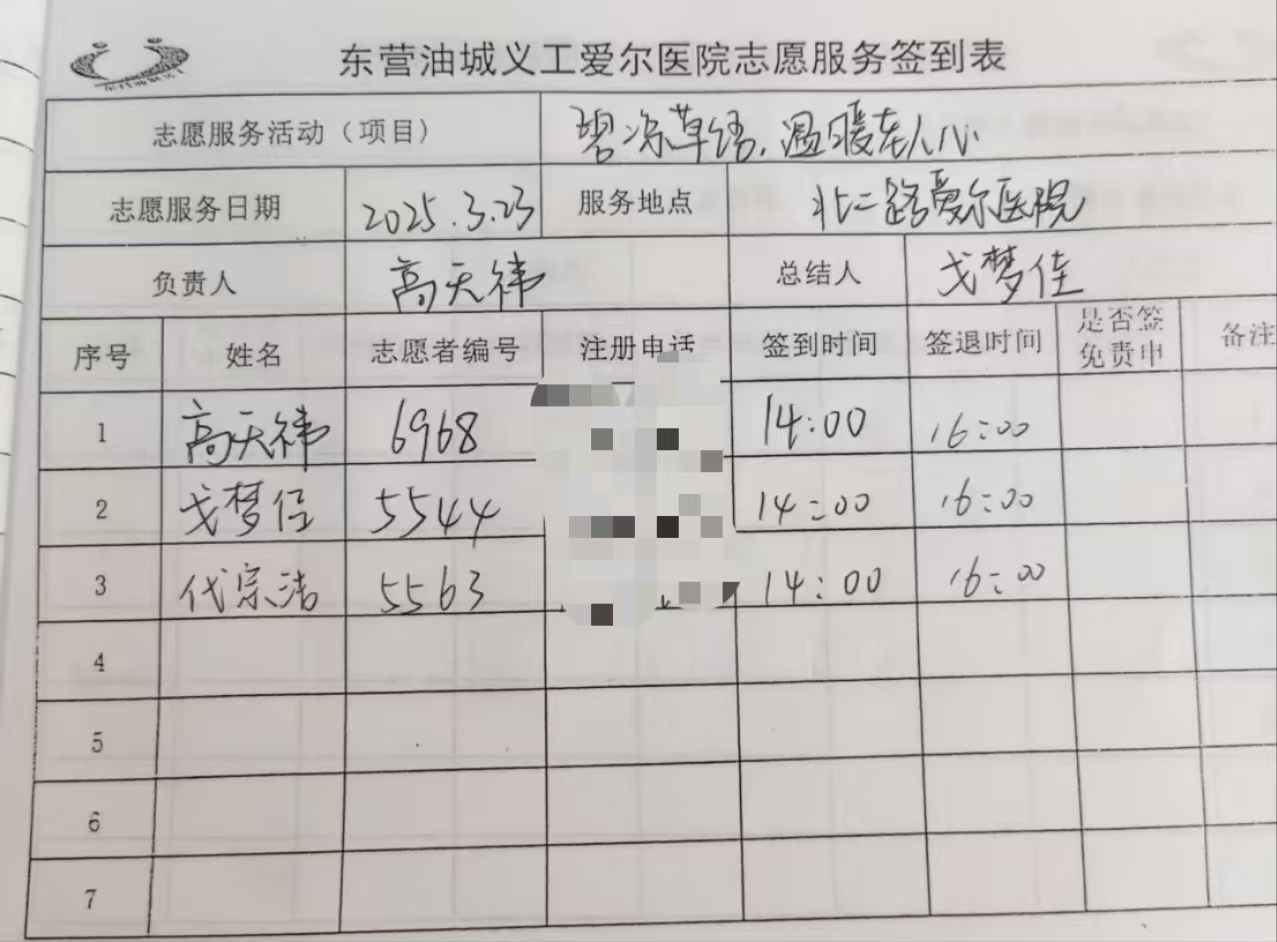 东营油城义工爱尔医院志愿服务签到表
志愿服务活动（项目） 碧 草 ，温暖在人心
志愿服务日期 2025.3.23 服务地点 北二路爱尔医院
负责人 高天祎 总结人 戈梦佳
序号 姓名 志愿者编号 注册电话 签到时间 签退时间 是否签免责申 备注
1 高天祎 6968 14:00 16:00
2 戈梦佳 5544 14:00 16:00
3 代宗洁 5563 14:00 16:00
4
5
6
7